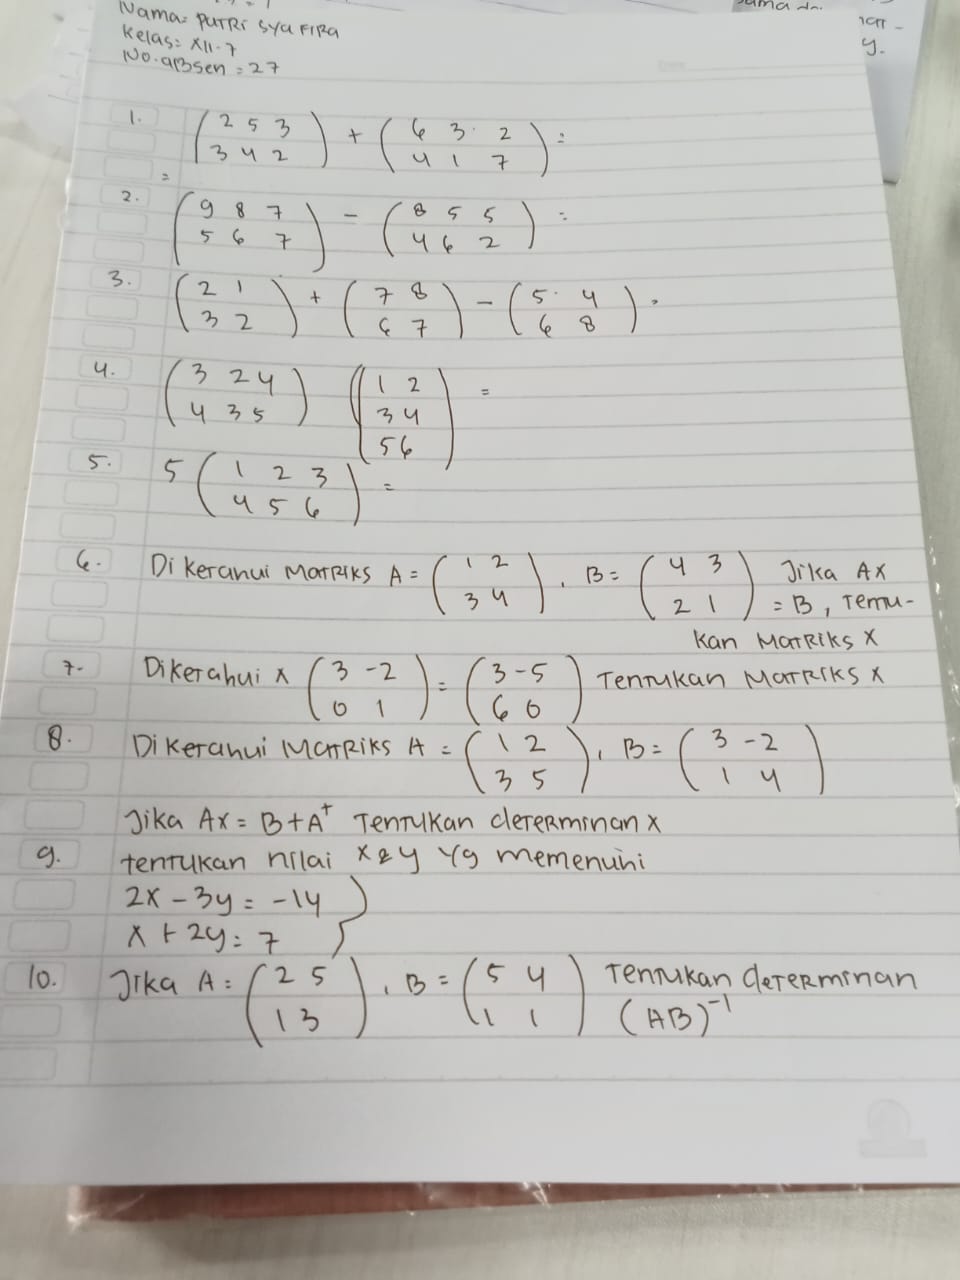 Nama= PUTRI SYAFIRA
Kelas= XII.7
No.aBsen = 27
1. (2 5 3) + (6 3 2) =
(3 4 2) (4 1 7)
=
2. (9 8 7) - (8 5 5) =
(5 6 7) (4 6 2)
3. (2 1) + (7 8) - (5 4) .
(3 2) (6 7) (6 8)
4. (3 2 4) (1 2) =
(4 3 5) (3 4)
(5 6)
5. 5 (1 2 3) =
(4 5 6)
6. Diketahui MATRIKS A = (1 2) , B = (4 3) Jika AX
(3 4) (2 1) = B, TEMU-
kan MATRIKS X
7. Diketahui X (3 -2) = (3 -5) TENTUKAN MATRIKS X
(0 1) (6 0)
8. Diketahui MATRIKS A = (1 2) , B = (3 -2)
(3 5) (1 4)
Jika AX = B + A^t TENTUKAN determinan X
9. tentukan nilai X & Y Yg memenuhi
2X - 3y = -14
X + 2y = 7
10. Jika A = (2 5) , B = (5 4) TENTUKAN determinan
(1 3) (1 1) (AB)^-1